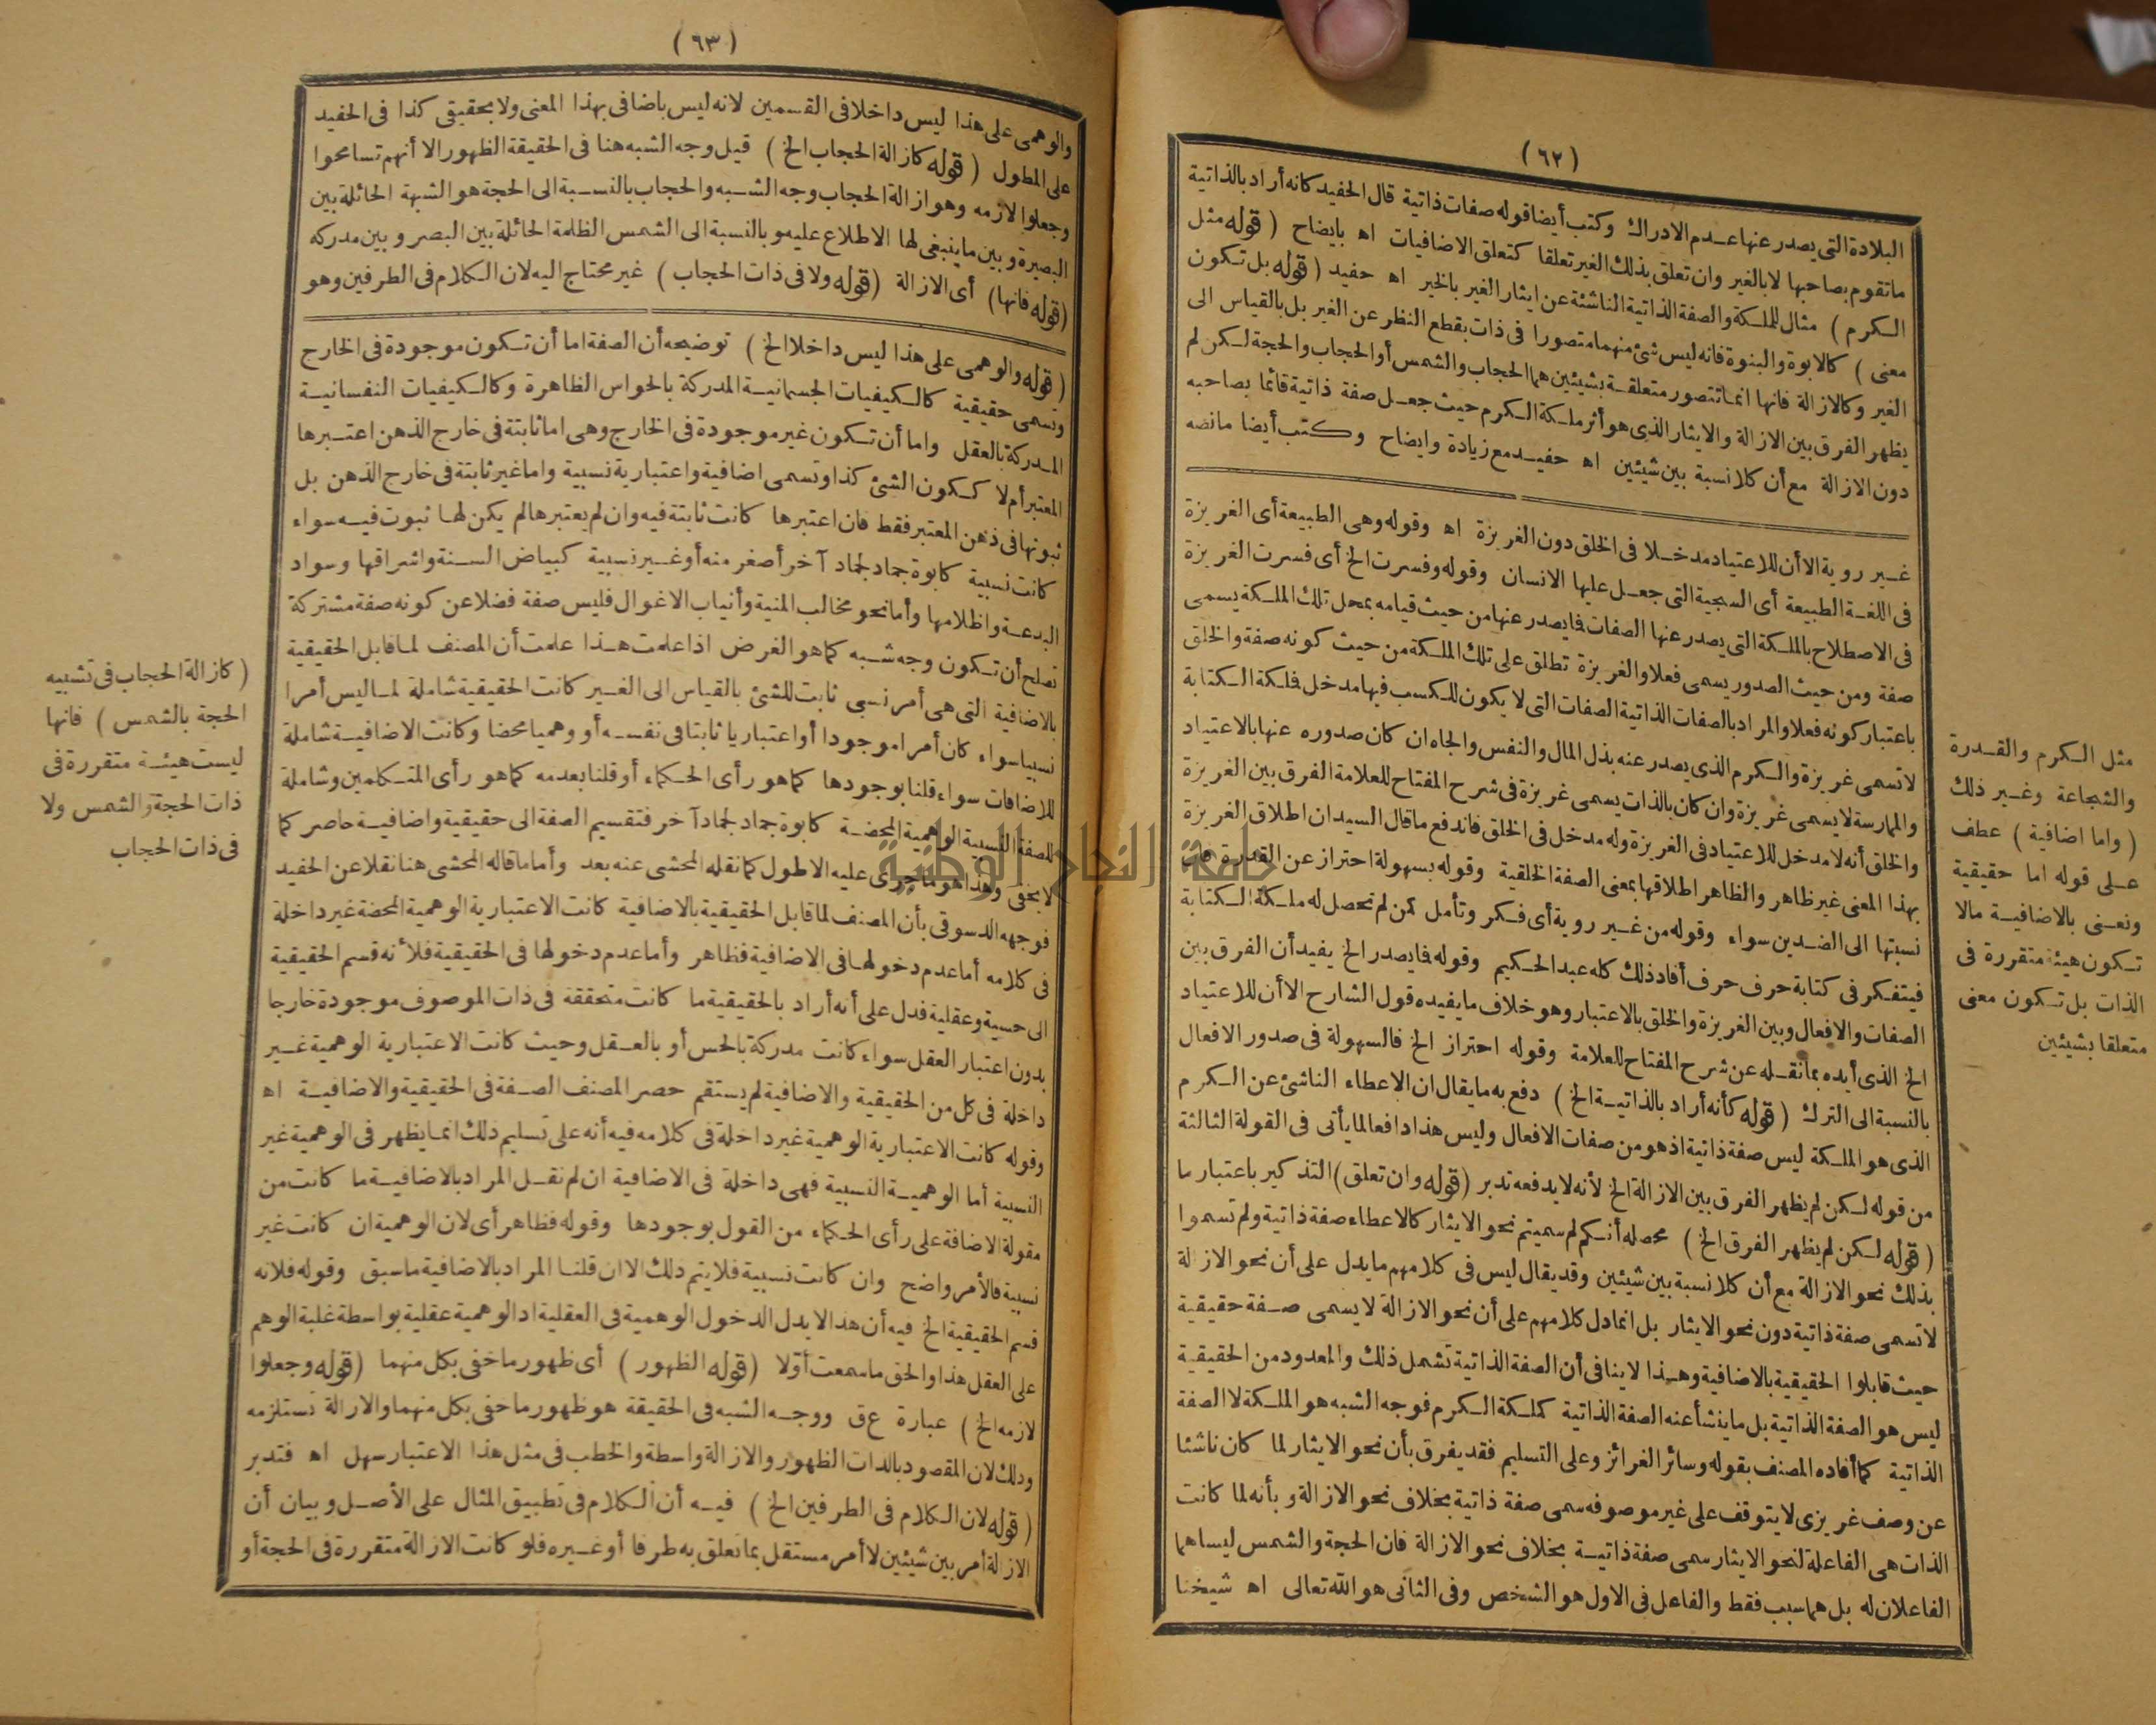 (٦٢)
البلادة التى يصدر عنها عدم الادراك وكتب أيضا قوله صفات ذاتية قال الحفيد كانه أراد بالذاتية
ماتقوم بصاحبها لا بالغير وان تعلق بذلك الغير تعلقا كتعلق الاضافيات اه بايضاح (قوله مثل
الكرم) مثال للملكة والصفة الذاتية الناشئة عن ايثار الغير بالخير اه حفيد (قوله بل تكون
معنى) كالابوة والبنوة فانه ليس شئ منهما متصورا فى ذات بقطع النظر عن الغير بل بالقياس الى
الغير وكالازالة فانها انما تتصور متعلقة بشيئين هما الحجاب والشمس أو الحجاب والحجة لكن لم
يظهر الفرق بين الازالة والايثار الذى هو أثر ملكة الكرم حيث جعل صفة ذاتية قائما بصاحبه
دون الازالة مع أن كلا نسبة بين شيئين اه حفيد مع زيادة وايضاح وكتب أيضا مانصه
غير روية الا أن للاعتياد مدخلا فى الخلق دون الغريزة اه وقوله وهى الطبيعة أى الغريزة
فى اللغة الطبيعة أى السجية التى جعل عليها الانسان وقوله وفسرت الخ أى فسرت الغريزة
فى الاصطلاح بالملكة التى يصدر عنها الصفات فايصدر عنها من حيث قيامه بمحل تلك الملكة يسمى
صفة ومن حيث الصدور يسمى فعلا والغريزة تطلق على تلك الملكة من حيث كونه صفة والخلق
باعتبار كونه فعلا والمراد بالصفات الذاتية الصفات التى لا يكون للكسب فيها مدخل فلكة الكتابة
لا تسمى غريزة والكرم الذى يصدر عنه بذل المال والنفس والجاه ان كان صدوره عنها بالاعتياد
والممارسة لا يسمى غريزة وان كان بالذات يسمى غريزة فى شرح المفتاح للعلامة الفرق بين الغريزة
والخلق أنه لا مدخل للاعتياد فى الغريزة وله مدخل فى الخلق فاندفع ماقال السيد ان اطلاق الغريزة
بهذا المعنى غير ظاهر والظاهر اطلاقها بمعنى الصفة الخلقية وقوله بسهولة احتراز عن القدرة فان
نسبتها الى الضدين سواء وقوله من غير روية أى فكر وتأمل كمن لم تحصل له ملكة الكتابة
فيتفكر فى كتابة حرف حرف أفاد ذلك كله عبد الحكيم وقوله فايصدر الخ يفيد أن الفرق بين
الصفات والافعال وبين الغريزة والخلق بالاعتبار وهو خلاف مايفيده قول الشارح الا أن للاعتياد
الخ الذى أيده بما نقله عن شرح المفتاح للعلامة وقوله احتراز الخ فالسهولة فى صدور الافعال
بالنسبة الى الترك (قوله كأنه أراد بالذاتية الخ) دفع به مايقال ان الاعطاء الناشئ عن الكرم
الذى هو الملكة ليس صفة ذاتية اذ هو من صفات الافعال وليس هذا دافعا لما يأتى فى القولة الثالثة
من قوله لكن لم يظهر الفرق بين الازالة الخ لأنه لا يدفعه تدبر (قوله وان تعلق) التذكير باعتبار ما
(قوله لكن لم يظهر الفرق الخ) محصله أنكم لم سميتم نحو الايثار كالاعطاء صفة ذاتية ولم تسموا
بذلك نحو الازالة مع أن كلا نسبة بين شيئين وقد يقال ليس فى كلامهم مايدل على أن نحو الازالة
لا تسمى صفة ذاتية دون نحو الايثار بل انما دل كلامهم على أن نحو الازالة لا يسمى صفة حقيقية
حيث قابلوا الحقيقية بالاضافية وهذا لا ينافى أن الصفة الذاتية تشمل ذلك والمعدود من الحقيقية
ليس هو الصفة الذاتية بل ماينشأ عنه الصفة الذاتية كملكة الكرم فوجه الشبه هو الملكة لا الصفة
الذاتية كما أفاده المصنف بقوله وسائر الغرائز وعلى التسليم فقد يفرق بأن نحو الايثار لما كان ناشئا
عن وصف غريزى لا يتوقف على غير موصوفه سمى صفة ذاتية بخلاف نحو الازالة وبأنه لما كانت
الذات هى الفاعلة لنحو الايثار سمى صفة ذاتية بخلاف نحو الازالة فان الحجة والشمس ليساهما
الفاعلان له بل هما سبب فقط والفاعل فى الاول هو الشخص وفى الثانى هو الله تعالى اه شيخنا
مثل الكرم والقدرة
والشجاعة وغير ذلك
(واما اضافية) عطف
على قوله اما حقيقية
ونعنى بالاضافية مالا
تكون هيئة متقررة فى
الذات بل تكون معنى
متعلقا بشيئين
(٦٣)
والوهمى على هذا ليس داخلا فى القسمين لانه ليس باضافى بهذا المعنى ولا بحقيقى كذا فى الحفيد
على المطول (قوله كازالة الحجاب الخ) قيل وجه الشبه هنا فى الحقيقة الظهور الا أنهم تسامحوا
وجعلوا لازمه وهو ازالة الحجاب وجه الشبه والحجاب بالنسبة الى الحجة هو الشبهة الحائلة بين
البصيرة وبين ماينبغى لها الاطلاع عليه وبالنسبة الى الشمس الظلمة الحائلة بين البصر وبين مدركه
(قوله فانها) أى الازالة (قوله ولا فى ذات الحجاب) غير محتاج اليه لان الكلام فى الطرفين وهو
(قوله والوهمى على هذا ليس داخلا الخ) توضيحه أن الصفة اما أن تكون موجودة فى الخارج
وتسمى حقيقية كالكيفيات الجسمانية المدركة بالحواس الظاهرة وكالكيفيات النفسانية
المدركة بالعقل واما أن تكون غير موجودة فى الخارج وهى اما ثابتة فى خارج الذهن اعتبرها
المعتبر أم لا ككون الشئ كذا وتسمى اضافية واعتبارية نسبية واما غير ثابتة فى خارج الذهن بل
ثبوتها فى ذهن المعتبر فقط فان اعتبرها كانت ثابتة فيه وان لم يعتبرها لم يكن لها ثبوت فيه سواء
كانت نسبية كابوة جماد لجماد آخر أصغر منه أو غير نسبية كبياض السنة واشراقها وسواد
البدعة واظلامها وأما نحو مخالب المنية وأنياب الاغوال فليس صفة فضلا عن كونه صفة مشتركة
تصلح أن تكون وجه شبه كما هو الغرض اذا علمت هذا علمت أن المصنف لما قابل الحقيقية
بالاضافية التى هى أمر نسبى ثابت للشئ بالقياس الى الغير كانت الحقيقية شاملة لما ليس أمرا
نسبيا سواء كان أمرا موجودا أو اعتباريا ثابتا فى نفسه أو وهميا محضا وكانت الاضافية شاملة
للاضافات سواء قلنا بوجودها كما هو رأى الحكماء أو قلنا بعدمه كما هو رأى المتكلمين وشاملة
للصفة النسبية الوهمية المحضة كابوة جماد لجماد آخر فتقسيم الصفة الى حقيقية واضافية حاصر كما
لا يخفى وهذا هو ما جرى عليه الاطول كما نقله المحشى عنه بعد وأما ماقاله المحشى هنا نقلا عن الحفيد
فوجهه الدسوقى بأن المصنف لما قابل الحقيقية بالاضافية كانت الاعتبارية الوهمية المحضة غير داخلة
فى كلامه أما عدم دخولها فى الاضافية فظاهر وأما عدم دخولها فى الحقيقية فلأنه قسم الحقيقية
الى حسية وعقلية فدل على أنه أراد بالحقيقية ما كانت متحققة فى ذات الموصوف موجودة خارجا
بدون اعتبار العقل سواء كانت مدركة بالحس أو بالعقل وحيث كانت الاعتبارية الوهمية غير
داخلة فى كل من الحقيقية والاضافية لم يستقم حصر المصنف الصفة فى الحقيقية والاضافية اه
وقوله كانت الاعتبارية الوهمية غير داخلة فى كلامه فيه أنه على تسليم ذلك انما يظهر فى الوهمية غير
النسبية أما الوهمية النسبية فهى داخلة فى الاضافية ان لم نقل المراد بالاضافية ما كانت من
مقولة الاضافة على رأى الحكماء من القول بوجودها وقوله فظاهر أى لان الوهمية ان كانت غير
نسبية فالأمر واضح وان كانت نسبية فلا يتم ذلك الا ان قلنا المراد بالاضافية ماسبق وقوله فلانه
قسم الحقيقية الخ فيه أن هذا لا يدل الدخول الوهمية فى العقلية اذ الوهمية عقلية بواسطة غلبة الوهم
على العقل هذا والحق ماسمعت أولا (قوله الظهور) أى ظهور ماخفى بكل منهما (قوله وجعلوا
لازمه الخ) عبارة ع ق ووجه الشبه فى الحقيقة هو ظهور ماخفى بكل منهما والازالة تستلزمه
وذلك لان المقصود بالذات الظهور والازالة واسطة والخطب فى مثل هذا الاعتبار سهل اه فتدبر
(قوله لان الكلام فى الطرفين الخ) فيه أن الكلام فى تطبيق المثال على الأصل وبيان أن
الازالة أمر بين شيئين لا أمر مستقل بما تعلق به طرفا أو غيره فلو كانت الازالة متقررة فى الحجة أو
(كازالة الحجاب فى تشبيه
الحجة بالشمس) فانها
ليست هيئة متقررة فى
ذات الحجة والشمس ولا
فى ذات الحجاب
جامعة النجاح الوطنية